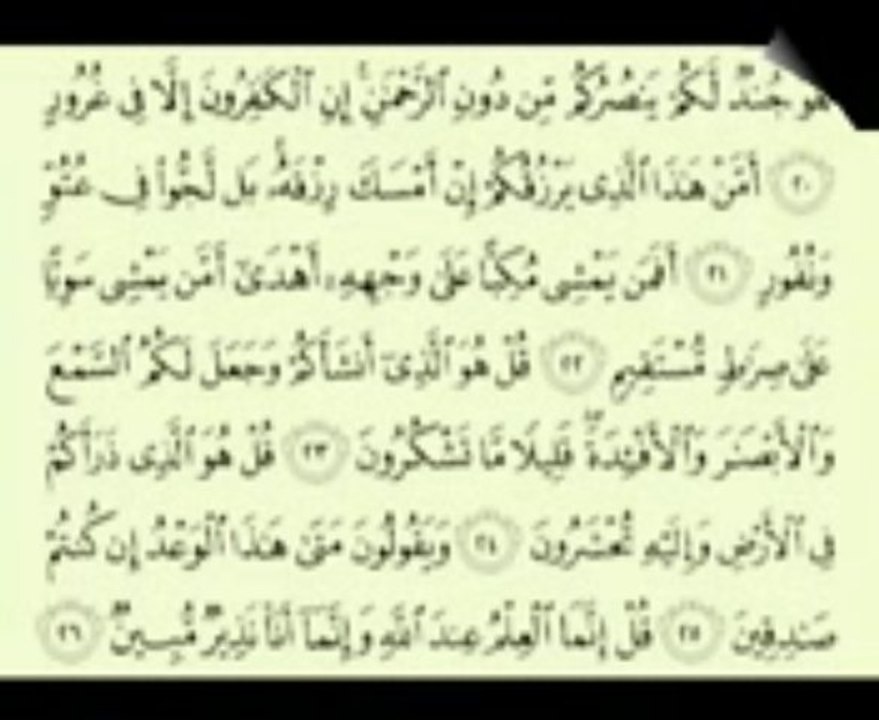 هُوَ جُندٌ لَّكُمْ يَنصُرُكُم مِّن دُونِ ٱلرَّحْمَٰنِ ۚ إِنِ ٱلْكَٰفِرُونَ إِلَّا فِى غُرُورٍ
٢٠ أَمَّنْ هَٰذَا ٱلَّذِى يَرْزُقُكُمْ إِنْ أَمْسَكَ رِزْقَهُۥ ۚ بَل لَّجُّوا۟ فِى عُتُوٍّ
وَنُفُورٍ ٢١ أَفَمَن يَمْشِى مُكِبًّا عَلَىٰ وَجْهِهِۦٓ أَهْدَىٰٓ أَمَّن يَمْشِى سَوِيًّا
عَلَىٰ صِرَٰطٍ مُّسْتَقِيمٍ ٢٢ قُلْ هُوَ ٱلَّذِىٓ أَنشَأَكُمْ وَجَعَلَ لَكُمُ ٱلسَّمْعَ
وَٱلْأَبْصَٰرَ وَٱلْأَفْـِٔدَةَ ۖ قَلِيلًا مَّا تَشْكُرُونَ ٢٣ قُلْ هُوَ ٱلَّذِى ذَرَأَكُمْ
فِى ٱلْأَرْضِ وَإِلَيْهِ تُحْشَرُونَ ٢٤ وَيَقُولُونَ مَتَىٰ هَٰذَا ٱلْوَعْدُ إِن كُنتُمْ
صَٰدِقِينَ ٢٥ قُلْ إِنَّمَا ٱلْعِلْمُ عِندَ ٱللَّهِ وَإِنَّمَآ أَنَا۠ نَذِيرٌ مُّبِينٌ ٢٦